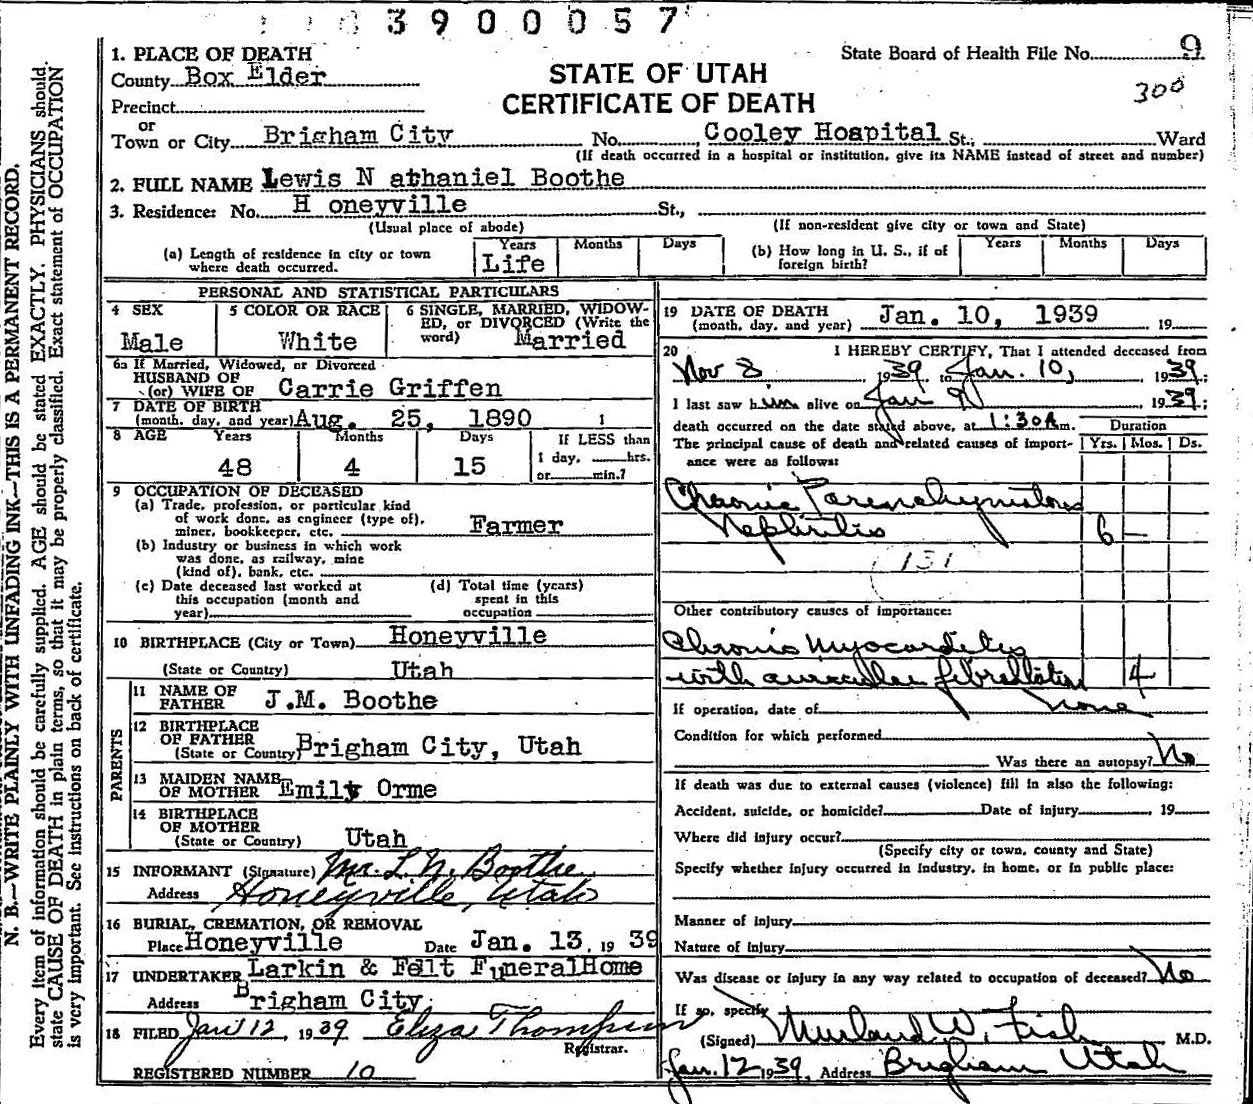 3900057
1. PLACE OF DEATH
State Board of Health File No. 9
County Box Elder
STATE OF UTAH
300
Precinct
CERTIFICATE OF DEATH
or
Town or City Brigham City No. Cooley Hospital St., Ward
(If death occurred in a hospital or institution, give its NAME instead of street and number)
2. FULL NAME Lewis N athaniel Boothe
3. Residence: No. H oneyville St.,
(Usual place of abode) (If non-resident give city or town and State)
(a) Length of residence in city or town where death occurred. Years Life Months Days
(b) How long in U. S., if of foreign birth? Years Months Days
PERSONAL AND STATISTICAL PARTICULARS
4 SEX Male
5 COLOR OR RACE White
6 SINGLE, MARRIED, WIDOW-
ED, or DIVORCED (Write the
word) Married
6a If Married, Widowed, or Divorced
HUSBAND OF
(or) WIFE OF Carrie Griffen
7 DATE OF BIRTH
(month, day, and year) Aug. 25, 1890 1
8 AGE Years Months Days If LESS than
48 4 15 1 day, hrs.
or min.?
9 OCCUPATION OF DECEASED
(a) Trade, profession, or particular kind
of work done, as engineer (type of),
miner, bookkeeper, etc. Farmer
(b) Industry or business in which work
was done, as railway, mine
(kind of), bank, etc.
(c) Date deceased last worked at
this occupation (month and
year)
(d) Total time (years)
spent in this
occupation
10 BIRTHPLACE (City or Town) Honeyville
(State or Country) Utah
PARENTS
11 NAME OF
FATHER J.M. Boothe
12 BIRTHPLACE
OF FATHER
(State or Country) Brigham City, Utah
13 MAIDEN NAME
OF MOTHER Emily Orme
14 BIRTHPLACE
OF MOTHER
(State or Country) Utah
15 INFORMANT (Signature) Mr. L. N. Boothe
Address Honeyville, Utah
16 BURIAL, CREMATION, OR REMOVAL
Place Honeyville Date Jan. 13, 19 39
17 UNDERTAKER Larkin & Felt FuneralHome
Address Brigham City
18 FILED Jan 12, 1939 Eliza Thompson
Registrar.
REGISTERED NUMBER 10
19 DATE OF DEATH
(month, day, and year) Jan. 10, 1939 19
20 I HEREBY CERTIFY, That I attended deceased from
Nov 8 1939 to Jan. 10, 1939;
I last saw him alive on Jan 9 1939;
death occurred on the date stated above, at 1:30A m.
Duration
The principal cause of death and related causes of import-
ance were as follows:
Yrs. Mos. Ds.
Chronic Parenchymatous
Nephritis 6 —
131
Other contributory causes of importance:
Chronic Myocarditis
with auricular fibrillation 4
If operation, date of None
Condition for which performed
Was there an autopsy? No
If death was due to external causes (violence) fill in also the following:
Accident, suicide, or homicide? Date of injury , 19
Where did injury occur?
(Specify city or town, county and State)
Specify whether injury occurred in industry, in home, or in public place:
Manner of injury
Nature of injury
Was disease or injury in any way related to occupation of deceased? No
If so, specify
(Signed) W. Fish M.D.
Jan. 12 1939, Address Brigham Utah
N. B.—WRITE PLAINLY WITH UNFADING INK—THIS IS A PERMANENT RECORD.
Every item of information should be carefully supplied. AGE should be stated EXACTLY. PHYSICIANS should
state CAUSE OF DEATH in plain terms, so that it may be properly classified. Exact statement of OCCUPATION
is very important. See instructions on back of certificate.